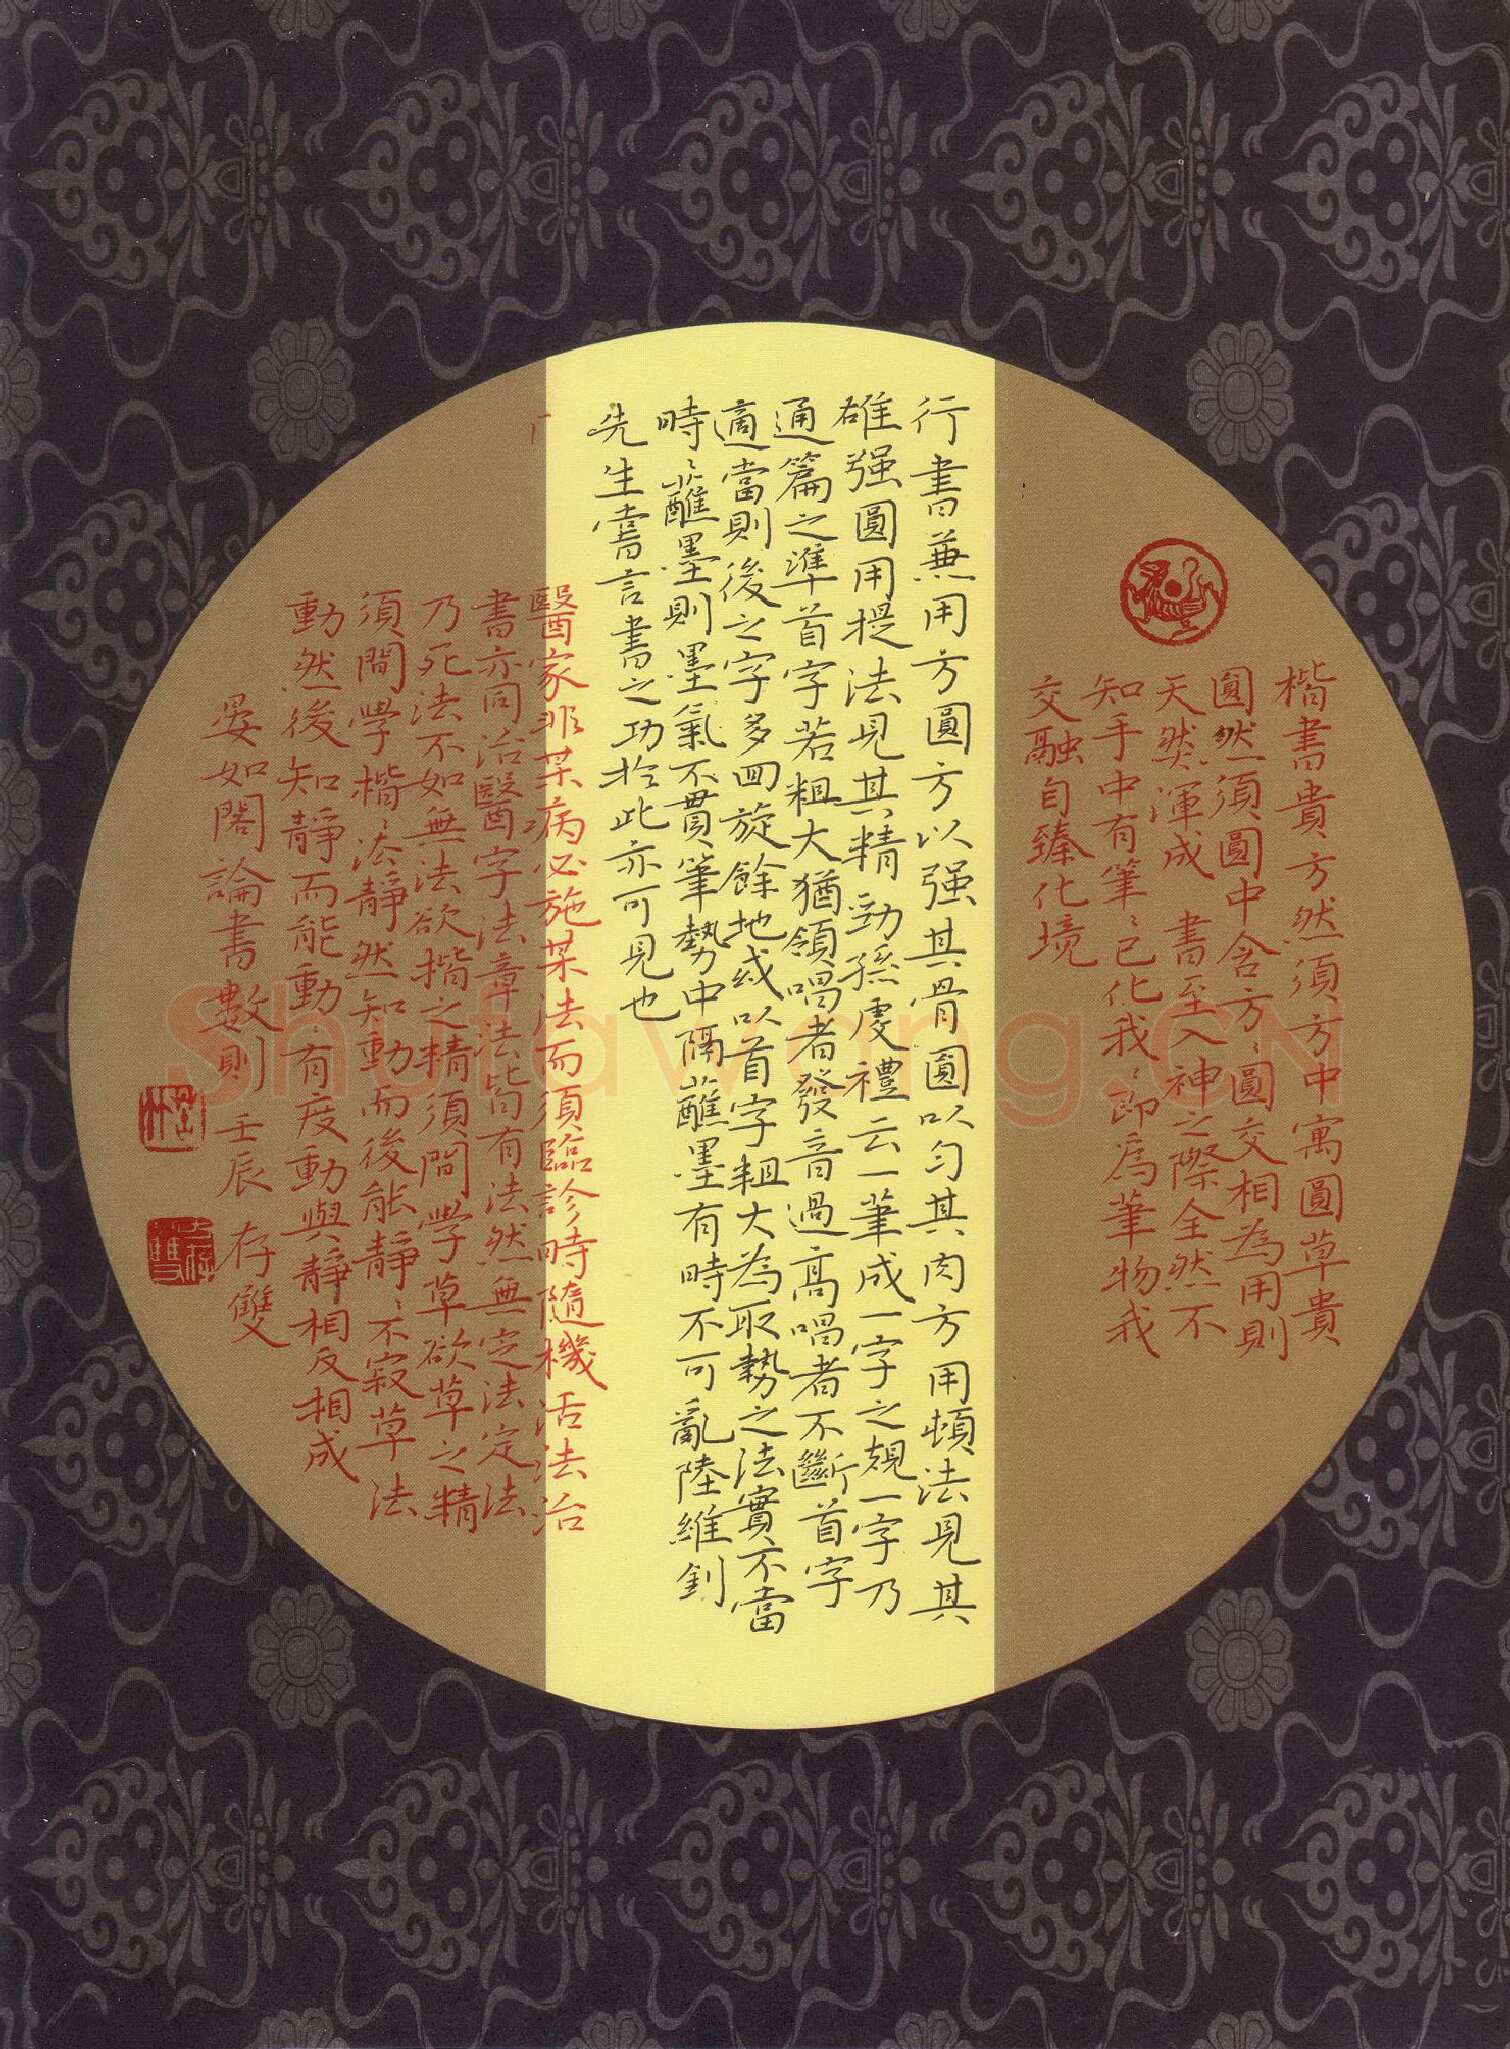 楷書貴方然須方中寓圓草貴
圓然須圓中含方方圓交相為用則
天然渾成 書至入神之際全然不
知手中有筆筆已化我我即為筆物我
交融自臻化境
行書兼用方圓方以强其骨圓以匀其肉方用頓法見其
雄强圓用提法見其精勁孫虔禮云一筆成一字之規一字乃
通篇之準首字若粗大猶領唱者發音過高唱者不斷首字
適當則後之字多回旋餘地或以首字粗大為取勢之法實不當
時時蘸墨則墨氣不貫筆勢中隔蘸墨有時不可亂陸維釗
先生嘗言書之功於此亦可見也
醫家非某病必施某法而須臨診時隨機活法治
書亦同治醫字法章法皆有法然無定法定法
乃死法不如無法欲楷之精須間學草欲草之精
須間學楷楷法靜然知動而後能靜靜不寂草法
動然後知靜而能動動有度動與靜相反相成
晏如閣論書數則 壬辰 存雙
Shufawang.CN